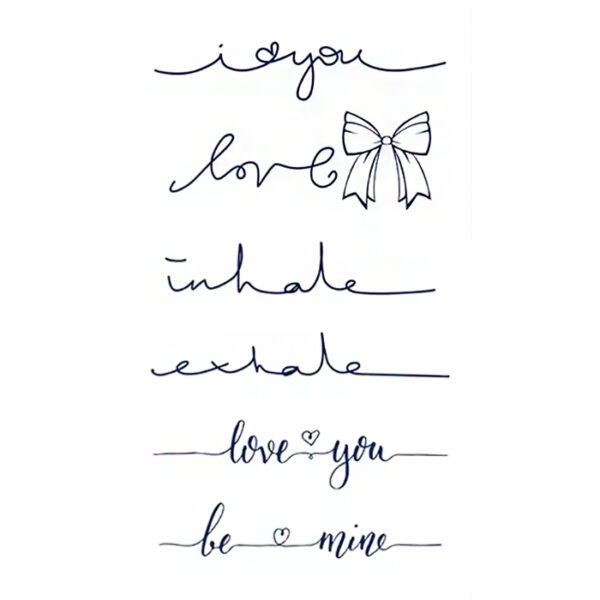 i you
love
inhale
exhale
love you
be mine